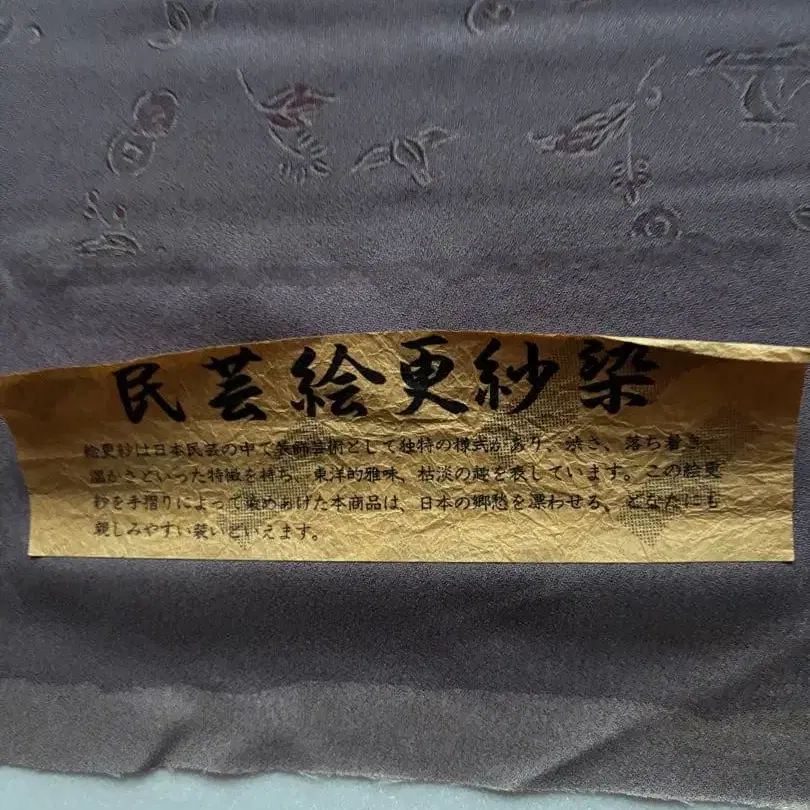 民芸絵更紗染
絵更紗は日本民芸の中で装飾芸術として独特の様式があり、渋さ、落ち着き、
温かさといった特徴を持ち、東洋的雅味、枯淡の趣を表しています。この絵更
紗を手摺りによって染めあげた本商品は、日本の郷愁を漂わせる、どなたにも
親しみやすい装いといえます。